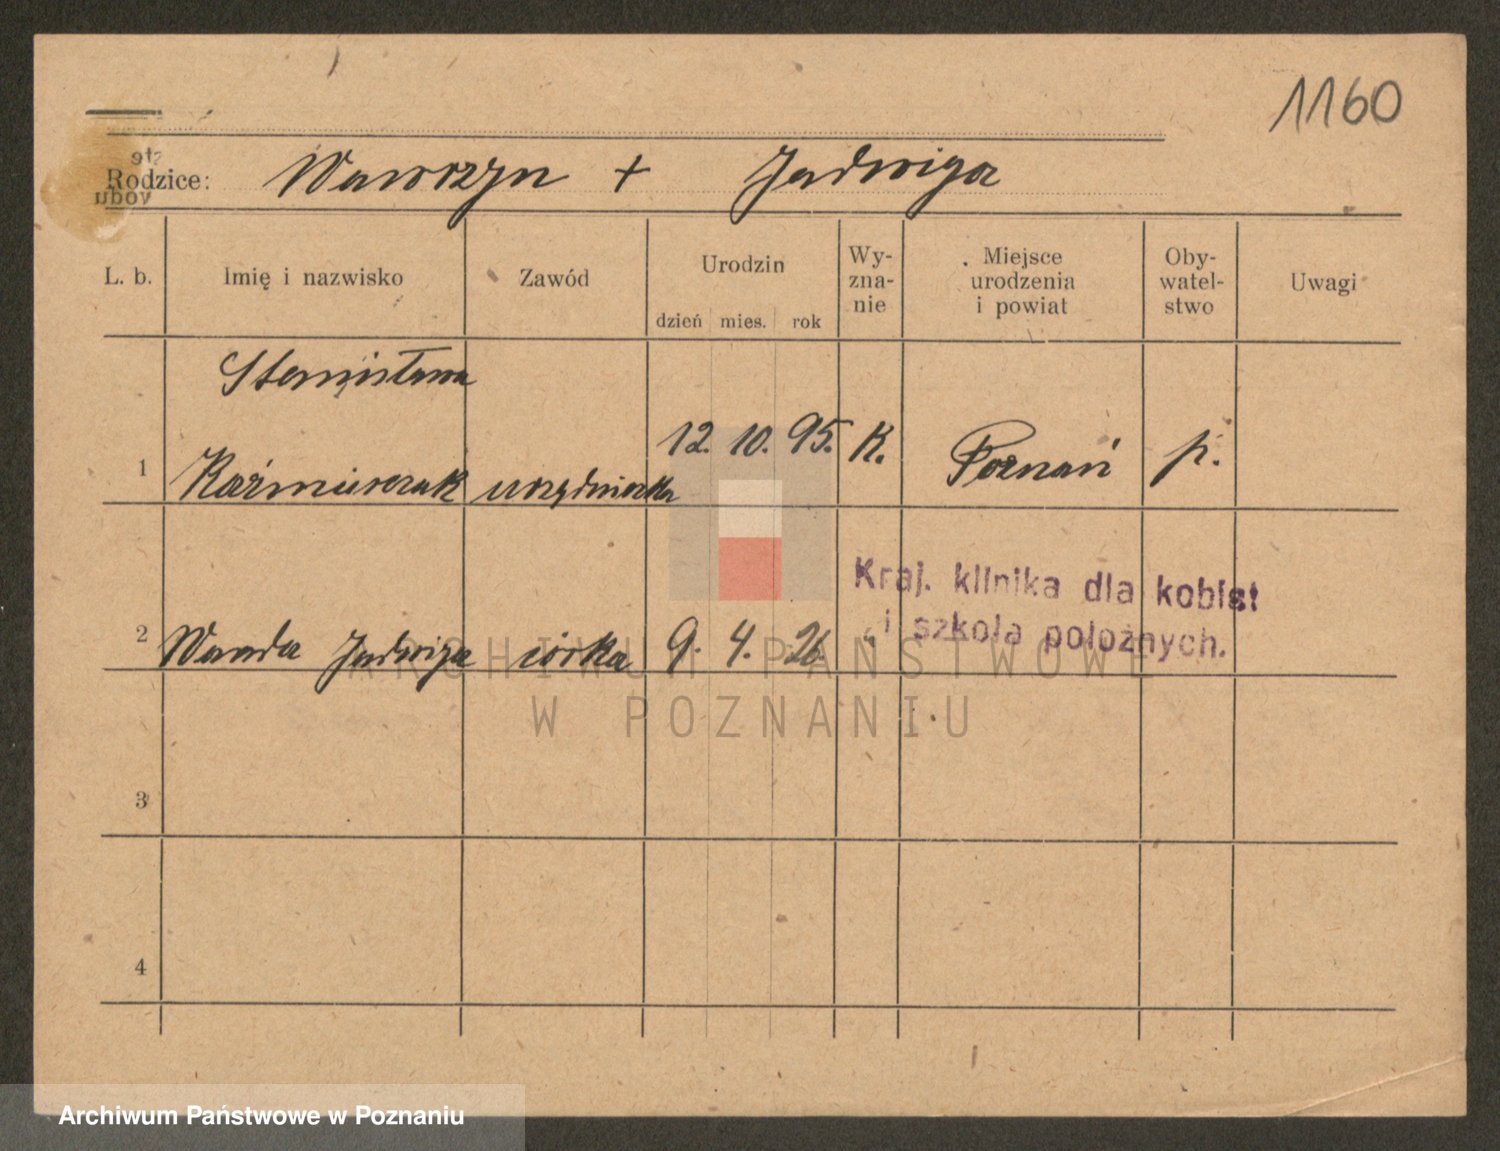 1160
Rodzice: Wawrzyn + Jadwiga
L. b. Imię i nazwisko Zawód Urodzin dzień mies. rok Wy-zna-nie Miejsce urodzenia i powiat Oby-watel-stwo Uwagi
Stanisława
1 Kaźmierczak urzędniczka 12. 10. 95. K. Poznań p.
Kraj. klinika dla kobiet
i szkoła położnych.
2 Wanda Jadwiga córka 9. 4. 26. "
ARCHIWUM PAŃSTWOWE
W POZNANIU
3
4
Archiwum Państwowe w Poznaniu